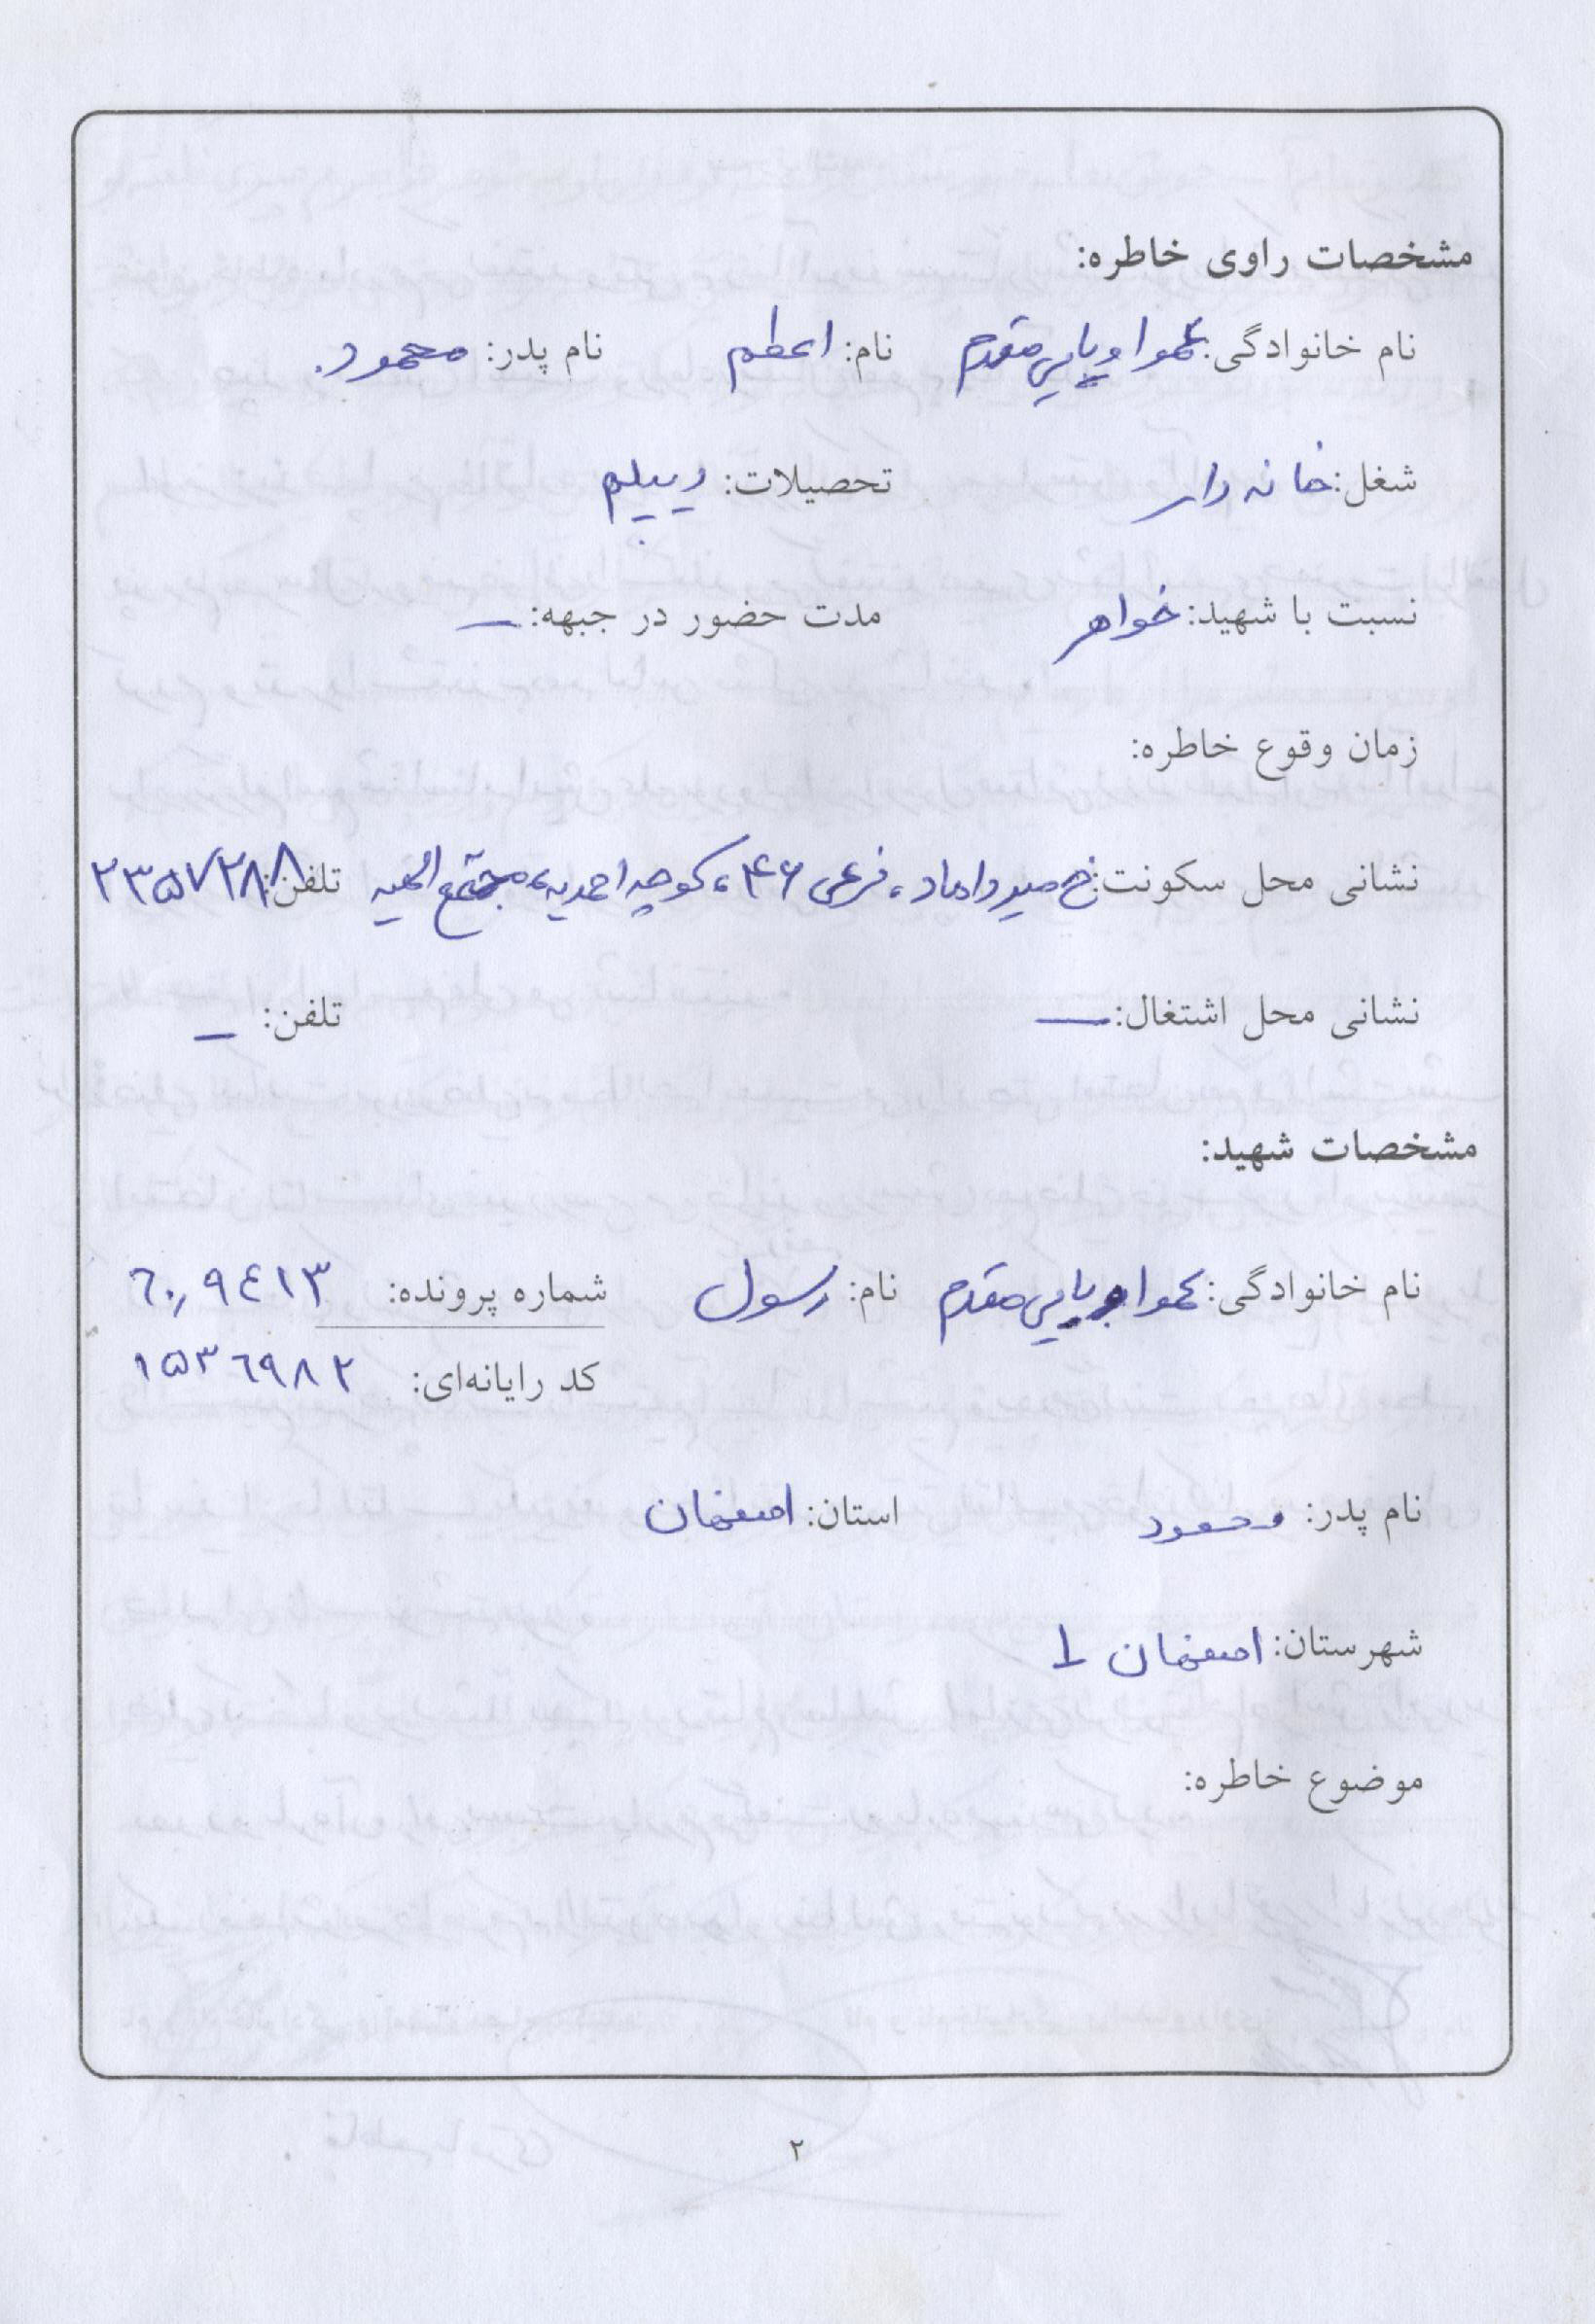 مشخصات راوی خاطره:
نام خانوادگی: مقدم نام: اعظم نام پدر: محمود
شغل: خانه دار تحصیلات: دیپلم
نسبت با شهید: خواهر مدت حضور در جبهه: –
زمان وقوع خاطره:
نشانی محل سکونت: خ میرداماد، فرعی ۴۶، کوچه احمدیه، مجتمع تلفن: ۲۳۵۷۲۸۸
نشانی محل اشتغال: – تلفن: –
مشخصات شهید:
نام خانوادگی: مقدم نام: رسول شماره پرونده: ۶۰۹۴۱۳
کد رایانه‌ای: ۱۵۳۶۹۸۲
نام پدر: محمود استان: اصفهان
شهرستان: اصفهان ۱
موضوع خاطره:
۲